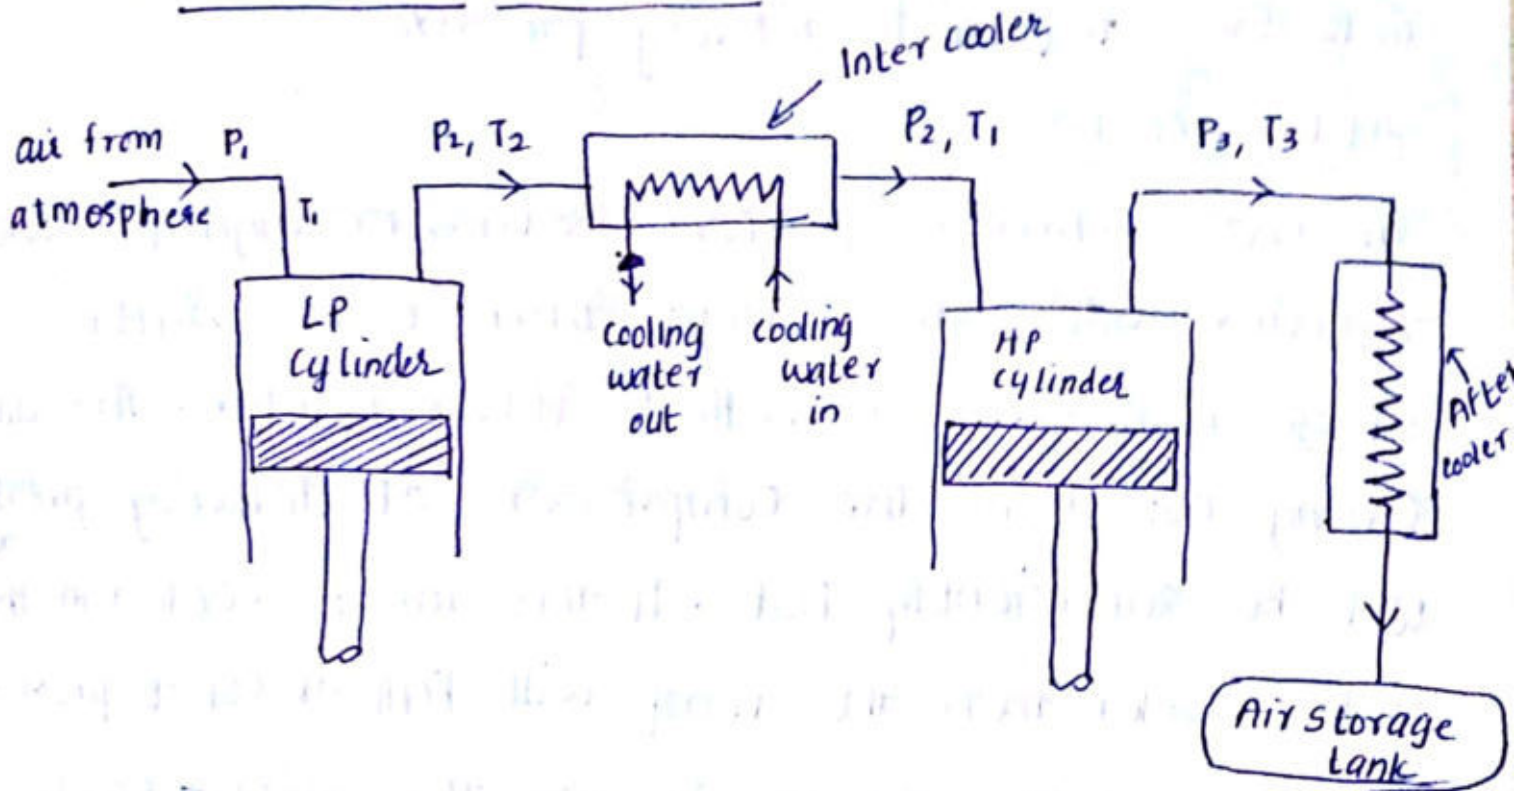 Inter cooler
air from
atmosphere
P₁
T₁
P₂, T₂
P₂, T₁
P₃, T₃
LP
Cylinder
cooling
water
out
cooling
water
in
HP
cylinder
After
cooler
Air storage
tank